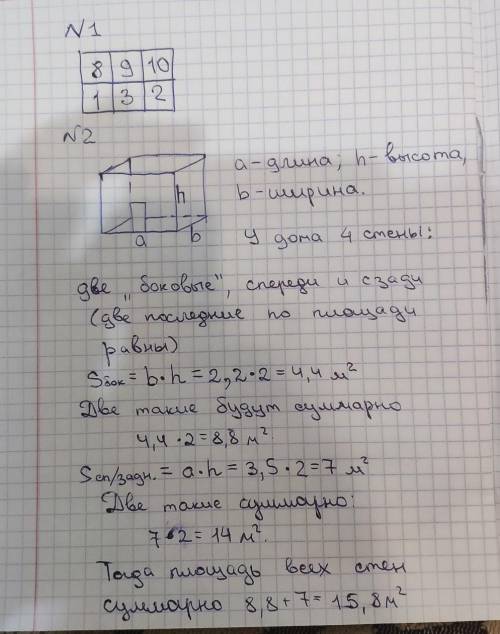 N1
8 9 10
1 3 2
N2
a-длина; h-высота,
b-ширина.
h
a b
У дома 4 стены:
две „боковые", спереди и сзади
(две последние по площади
равны)
Sбок = b·h = 2,2·2 = 4,4 м²
Две такие будут суммарно
4,4·2=8,8 м².
Sсп/задн. = a·h = 3,5·2=7 м²
Две такие суммарно:
7·2=14 м².
Тогда площадь всех стен
суммарно 8,8+7=15,8м²